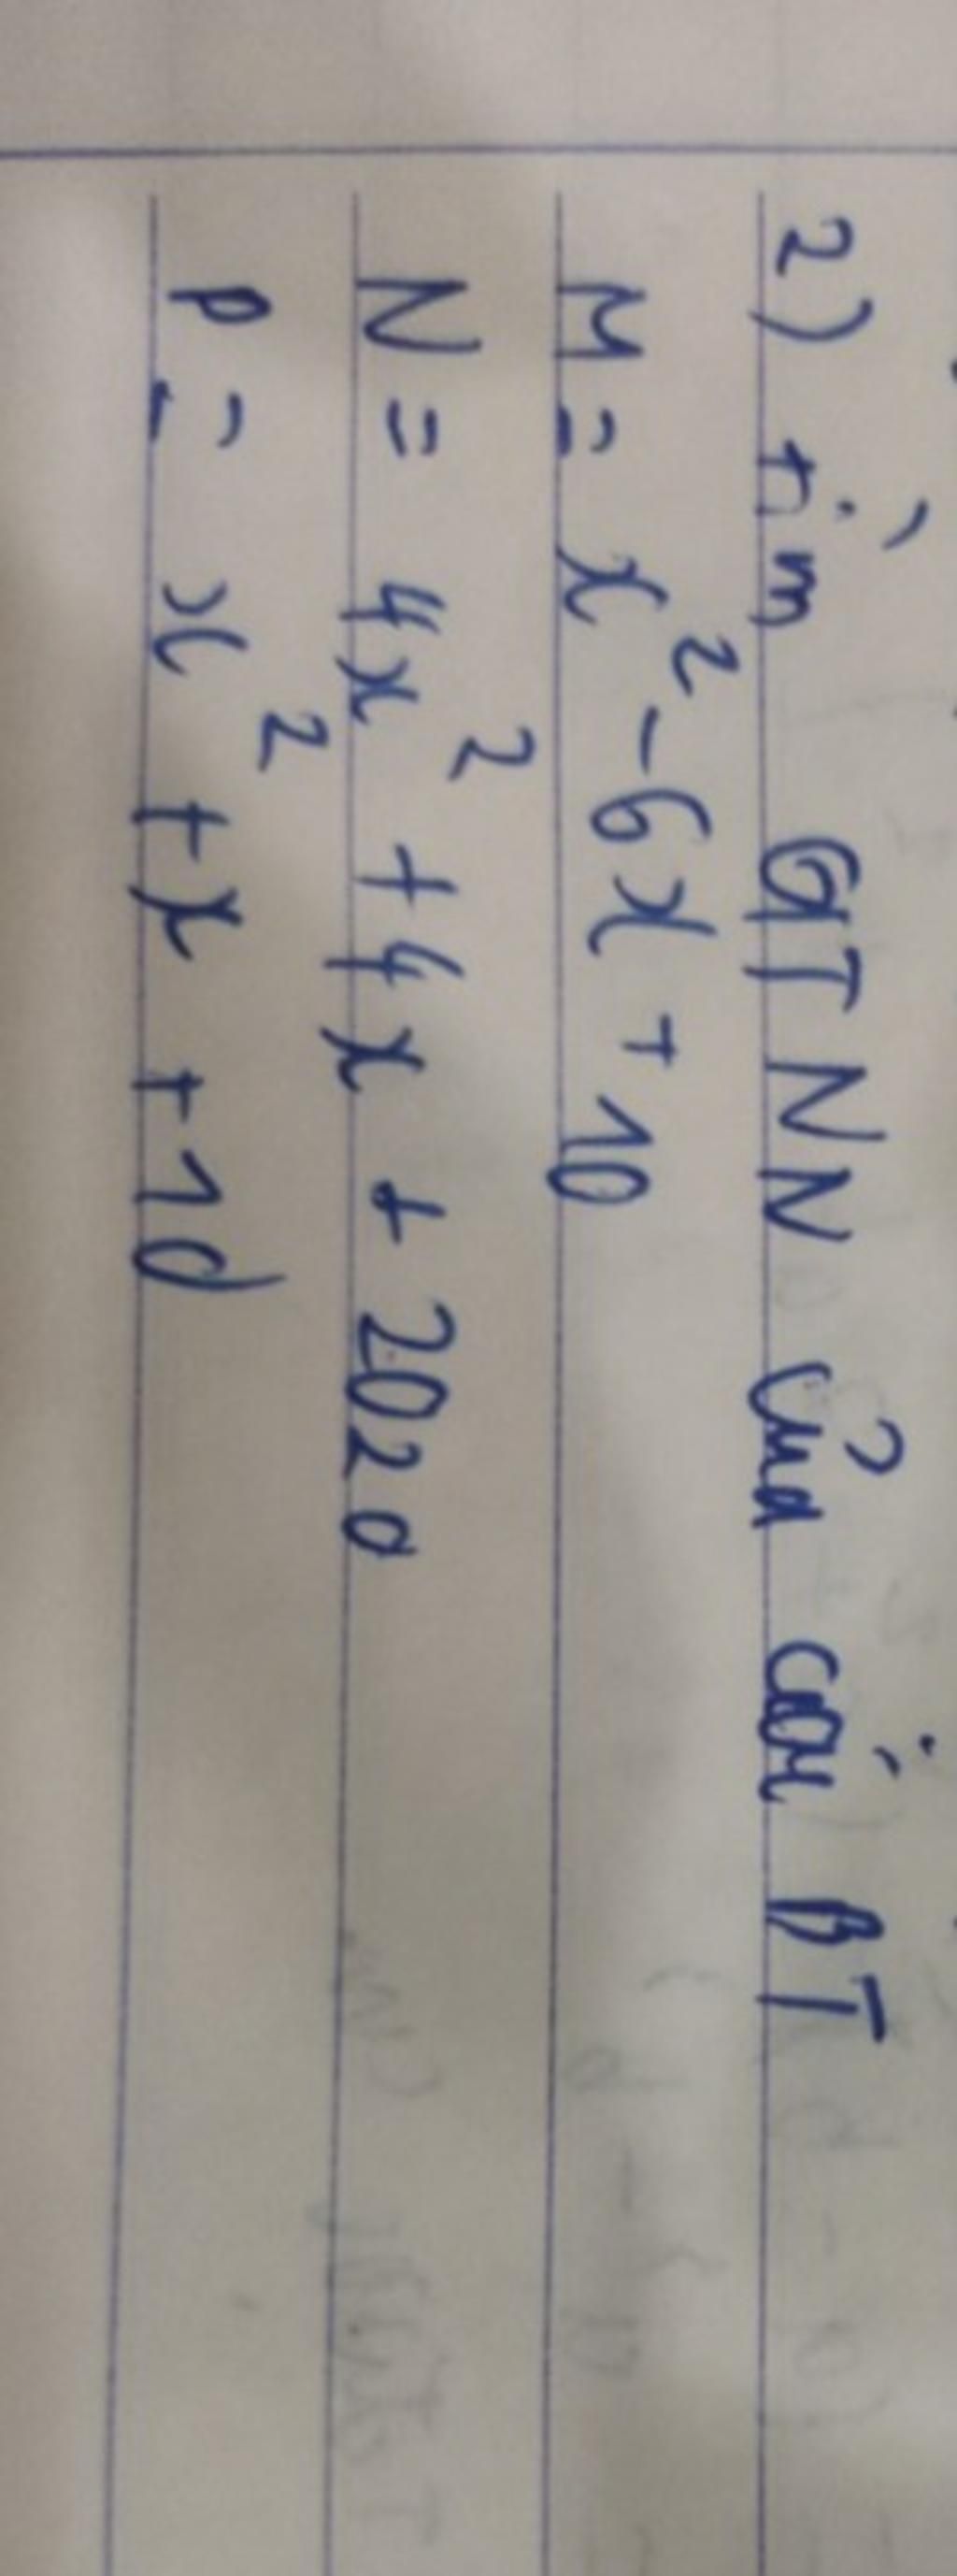 2) tìm GTNN của các BT
M = x² - 6x + 10
N = 4x² + 4x + 2020
P = x² + x + 10